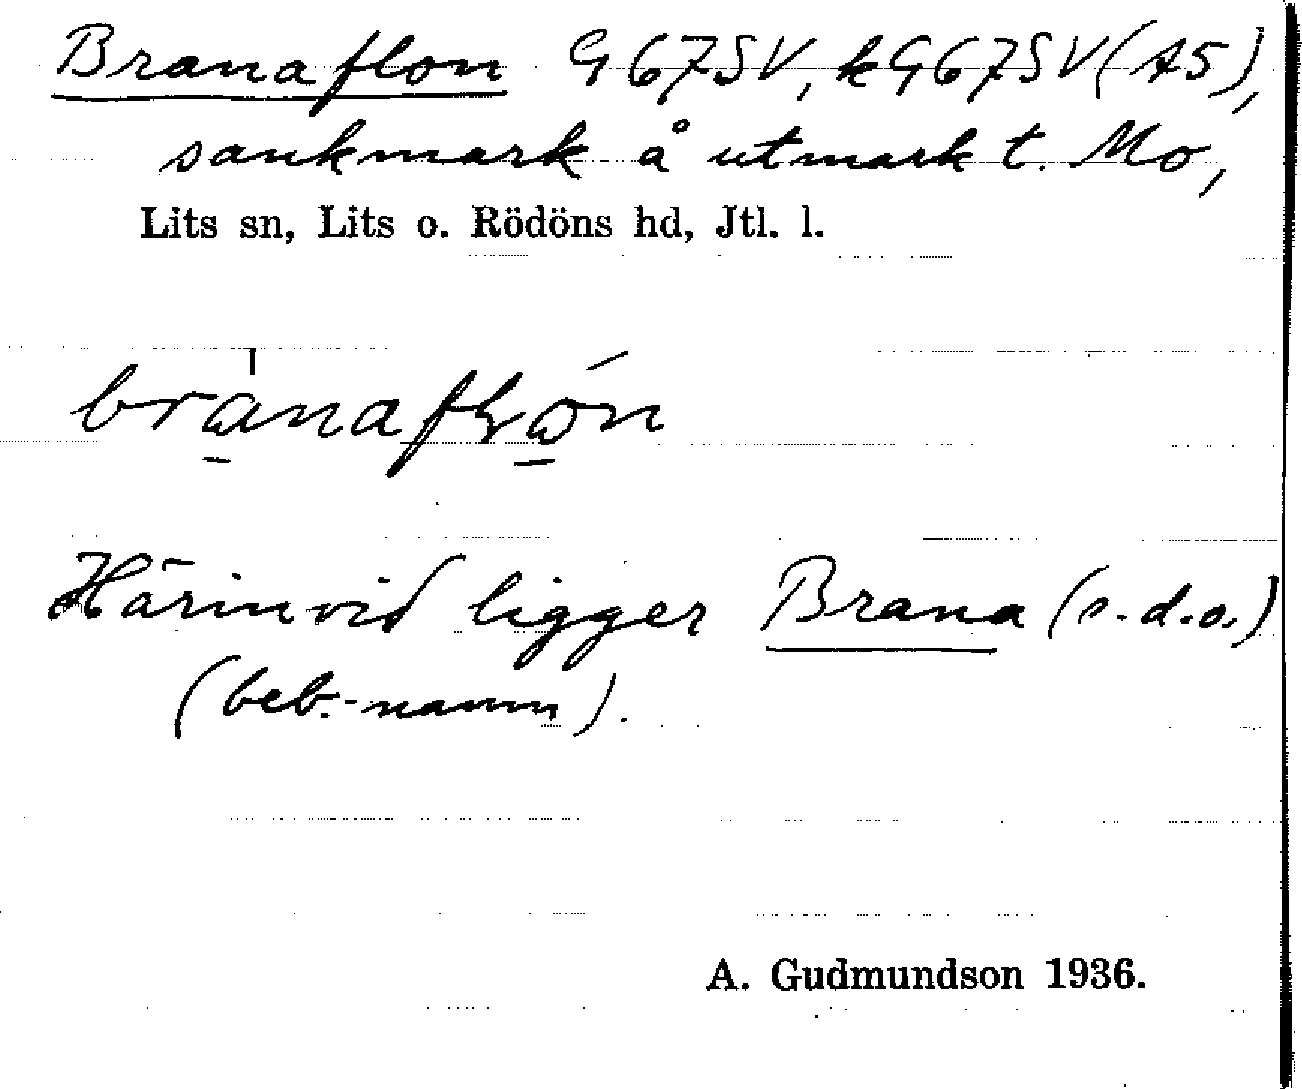 Branaflon G67SV, kG67SV(A5),
sankmark å utmark t. Mo,
Lits sn, Lits o. Rödöns hd, Jtl. l.
Härinvid ligger Brana (s.d.o.)
(beb.-namn).
A. Gudmundson 1936.